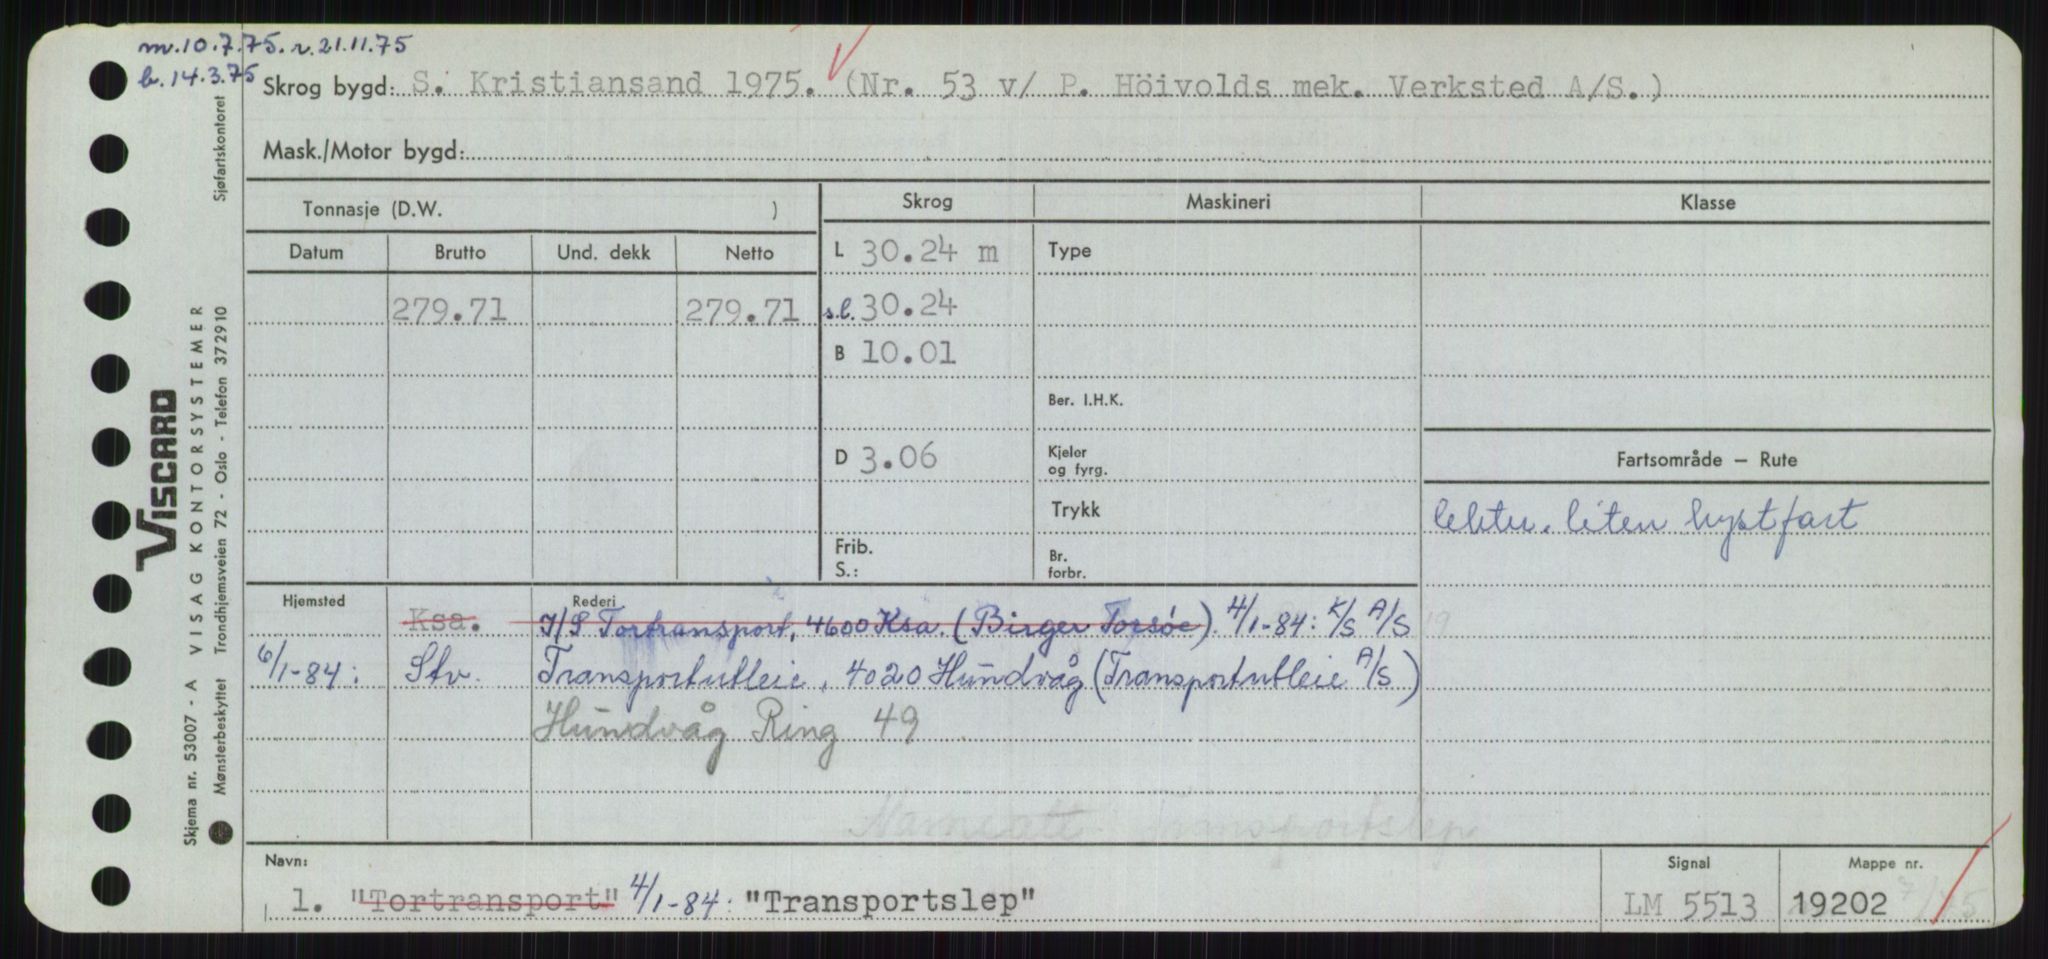 m. 10.7.75. r. 21.11.75
b. 14.3.75
Skrog bygd: S. Kristiansand 1975. (Nr. 53 v/ P. Höivolds mek. Verksted A/S.)
Mask./Motor bygd:
Tonnasje (D.W. )
Skrog Maskineri Klasse
Datum Brutto Und. dekk Netto
L 30.24 m Type
279.71 279.71 s.l. 30.24
B 10.01
Ber. I.H.K.
D 3.06 Kjeler og fyrg.
Fartsområde – Rute
Trykk
lekter. liten kystfart
Frib. S.:
Br. forbr.
Hjemsted Rederi
Ksa. I/S Tortransport, 4600 Ksa. (Birger Torsöe). 4/1-84: K/S A/S
6/1-84: Stv. Transportutleie, 4020 Hundvåg (Transportutleie A/S)
Hundvåg Ring 49
Navneatt Transportslep
Navn: Signal Mappe nr.
1. "Tortransport" 4/1-84: "Transportslep" LM 5513 19202
VISCARD
VISAG KONTORSYSTEMER
Skjema nr. 53007 - A
Sjøfartskontoret
Trondhjemsveien 72 - Oslo - Telefon 372910
Mønsterbeskyttet